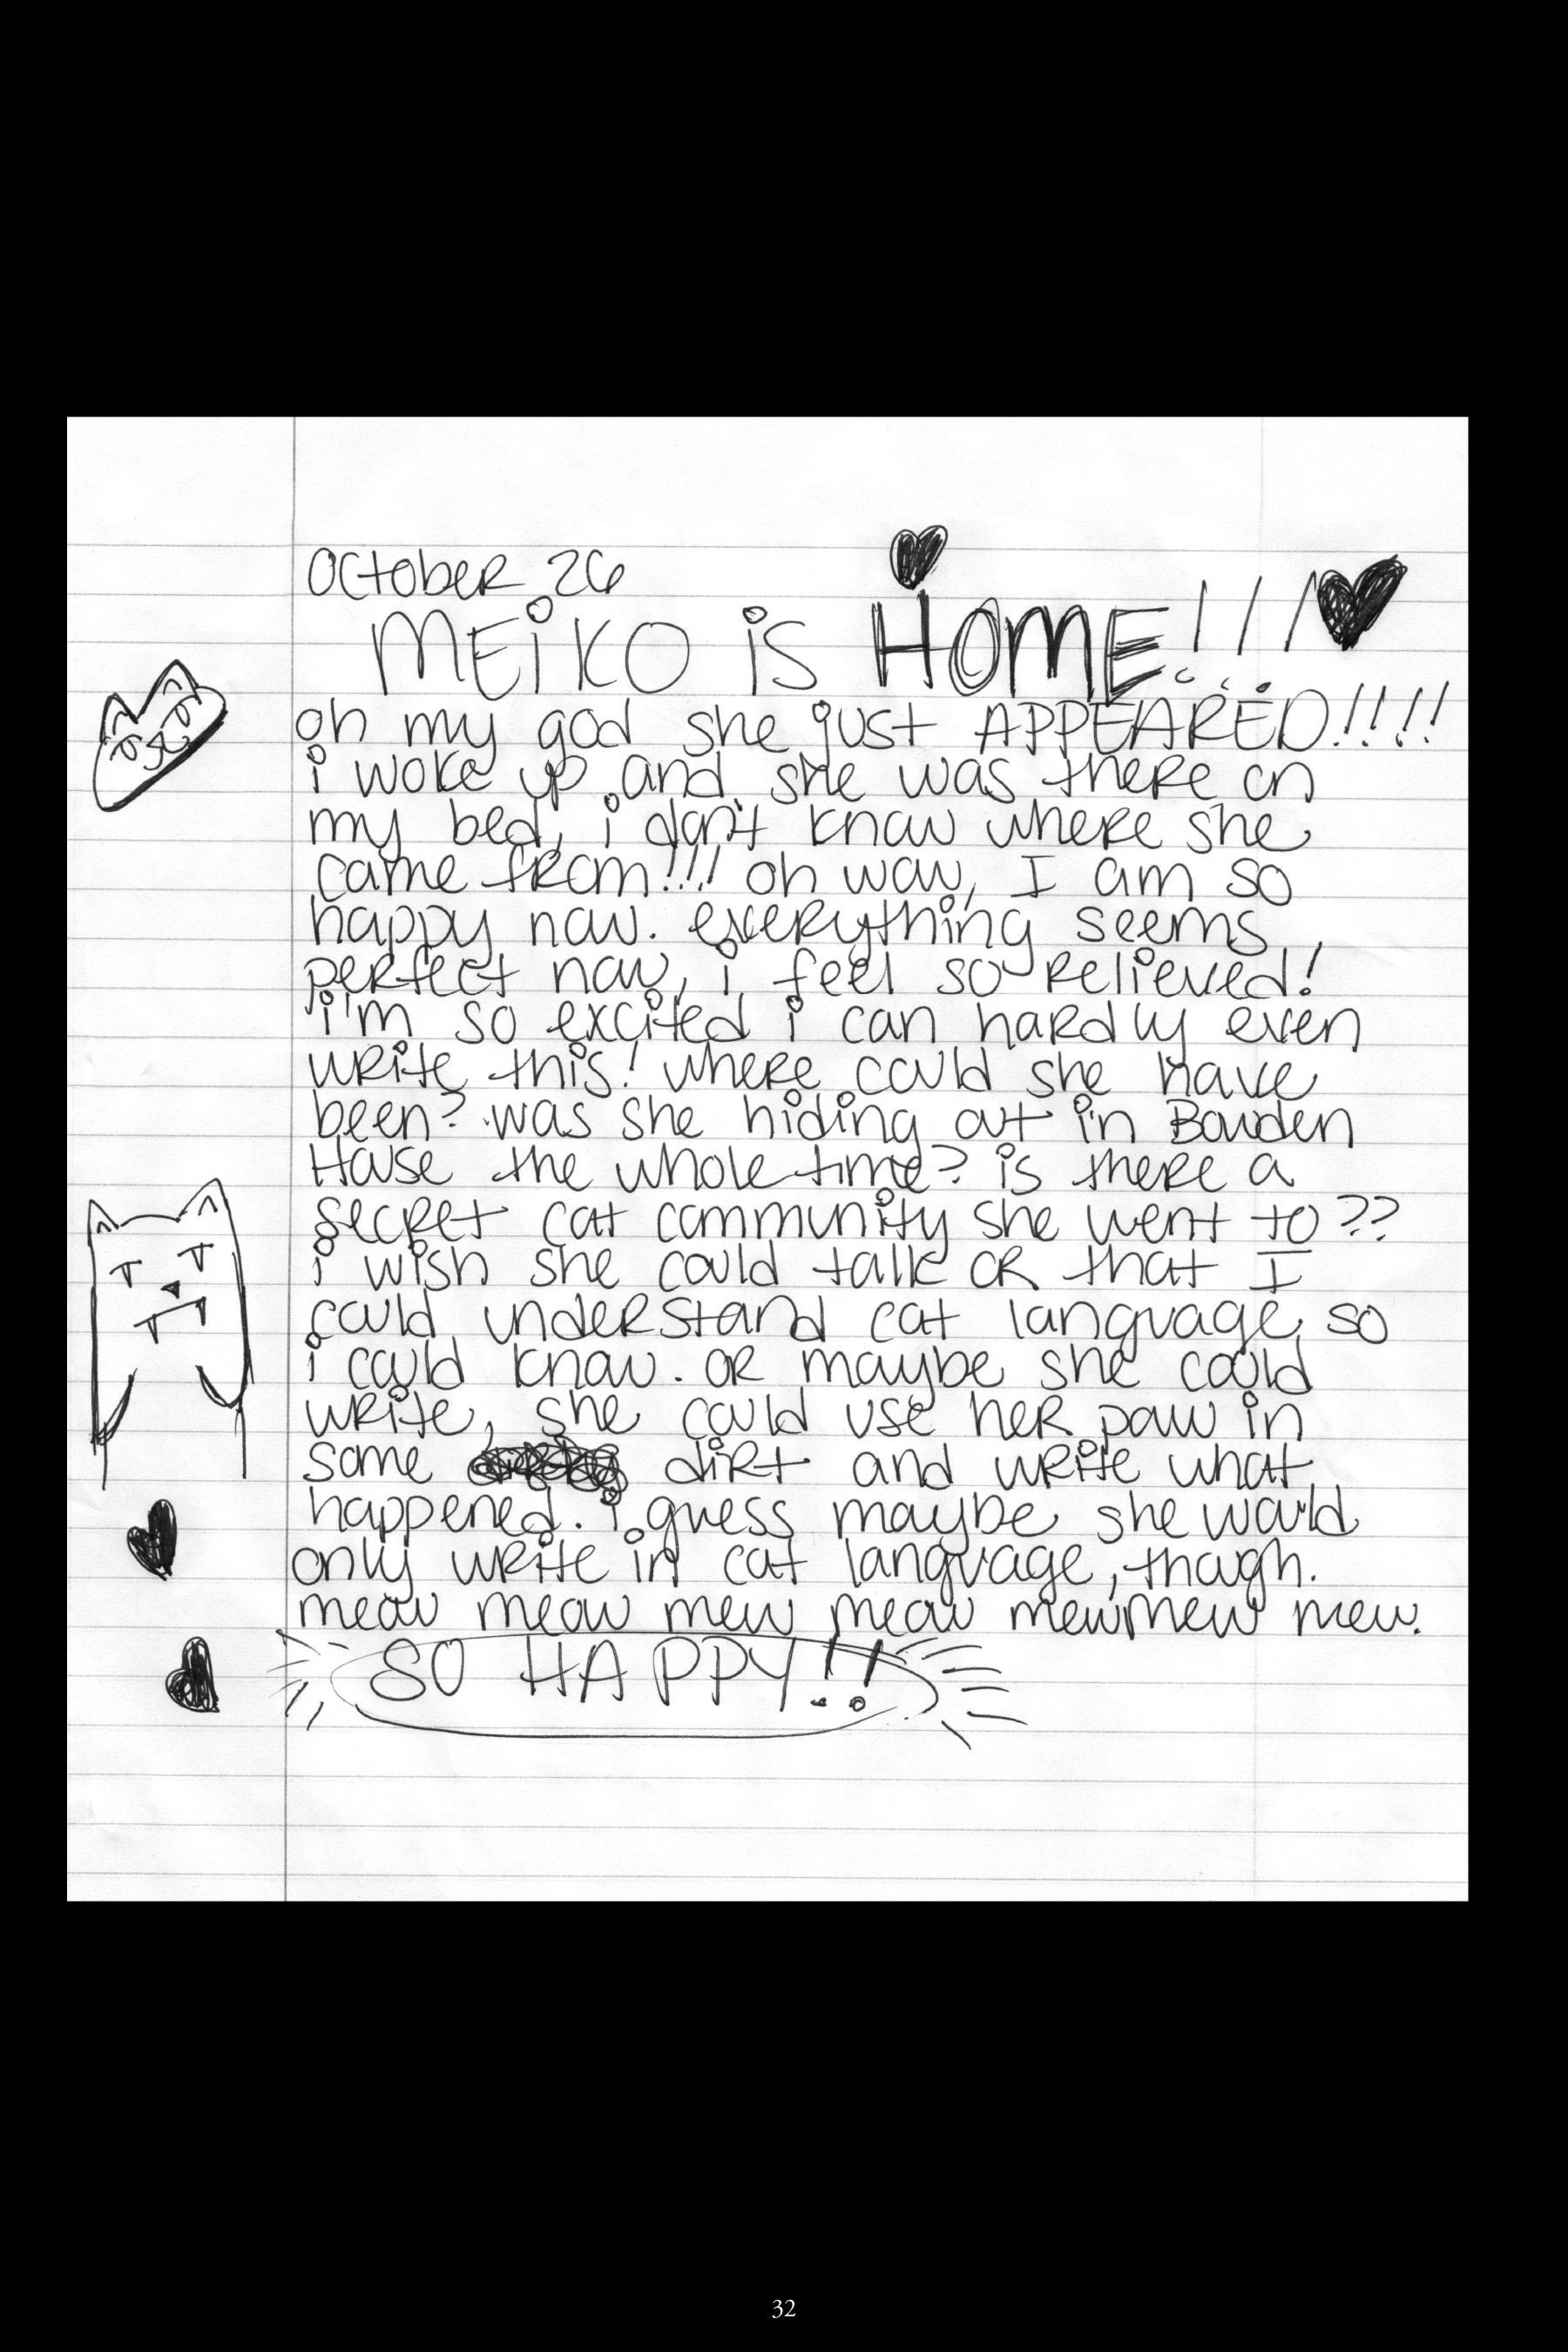 October 26
MEiKO iS HOME!!!
oh my god she just APPEARED!!!!
i woke up and she was there on
my bed, i don't know where she
came from!!! oh wow, I am so
happy now. everything seems
perfect now, i feel so relieved!
i'm so excited i can hardly even
write this! where could she have
been? was she hiding out in Bowden
House the whole time? is there a
secret cat community she went to??
i wish she could talk or that I
could understand cat language so
i could know. or maybe she could
write, she could use her paw in
some dirt and write what
happened. i guess maybe she would
only write in cat language, though.
meow meow mew meow mewmew mew.
SO HAPPY!!
32